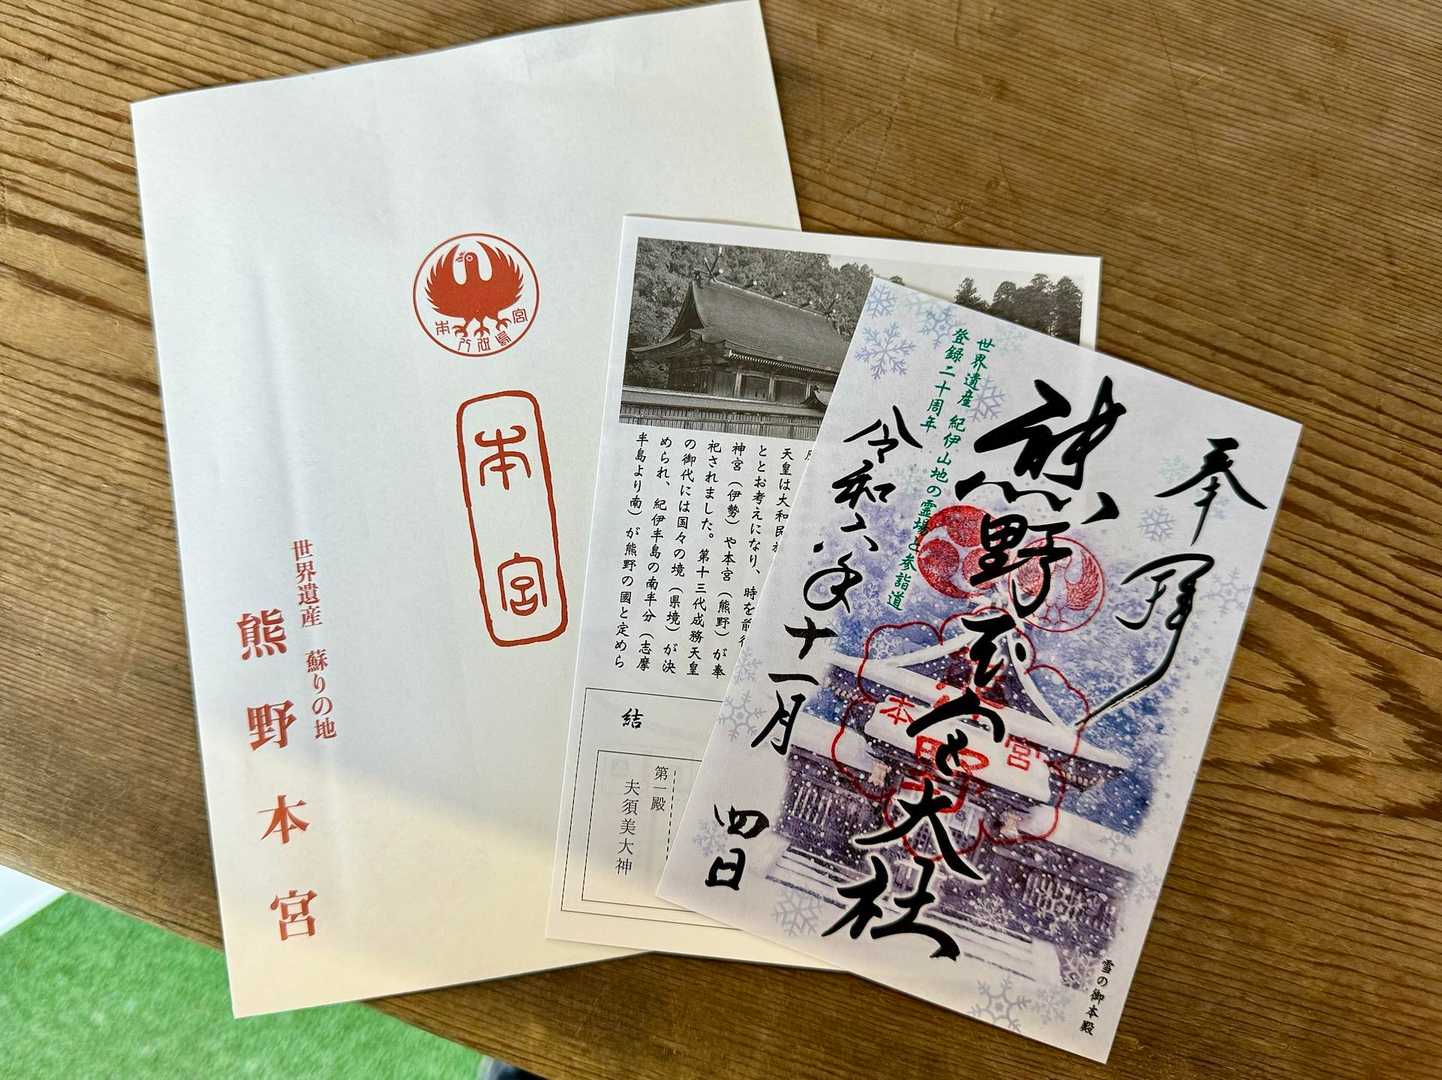 本宮
八咫烏
本宮
世界遺産 蘇りの地
熊野本宮
天皇は大和民
ととお考えになり、時を前後
神宮（伊勢）や本宮（熊野）が奉
祀されました。第十三代成務天皇
の御代には国々の境（県境）が決
められ、紀伊半島の南半分（志摩
半島より南）が熊野の國と定めら
結
第一殿
夫須美大神
奉拝
熊野本宮大社
世界遺産 紀伊山地の霊場と参詣道
登録二十周年
令和六年十一月
四日
本宮
雪の御本殿